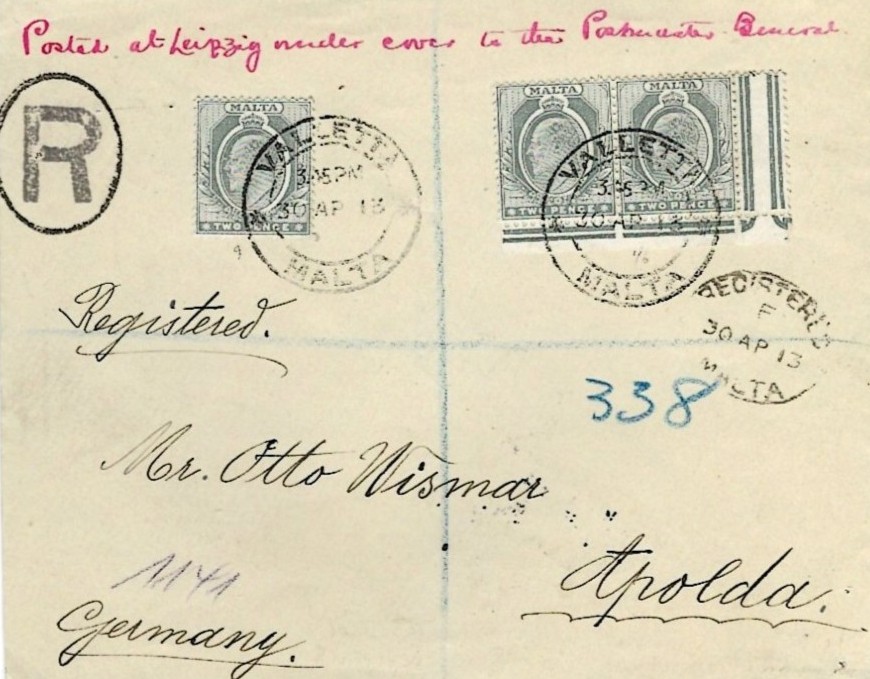 Posted at Leipzig under cover to the Postmaster General
R
MALTA
TWO PENCE
VALLETTA
3.45PM
30 AP 13
MALTA
MALTA
TWO PENCE
MALTA
TWO PENCE
VALLETTA
3.45PM
30 AP 13
MALTA
REGISTERED
F
30 AP 13
MALTA
Registered.
338
Mr. Otto Wismar
Apolda.
1141
Germany.